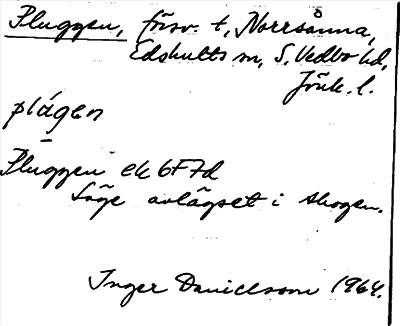 Pluggen, försv. t. Norrsånna,
Edshults sn, S. Vedbo hd,
Jönk. l.
plágen
Pluggen ek 6F7d
Läge avlägset i skogen.
Inger Danielsson 1964.